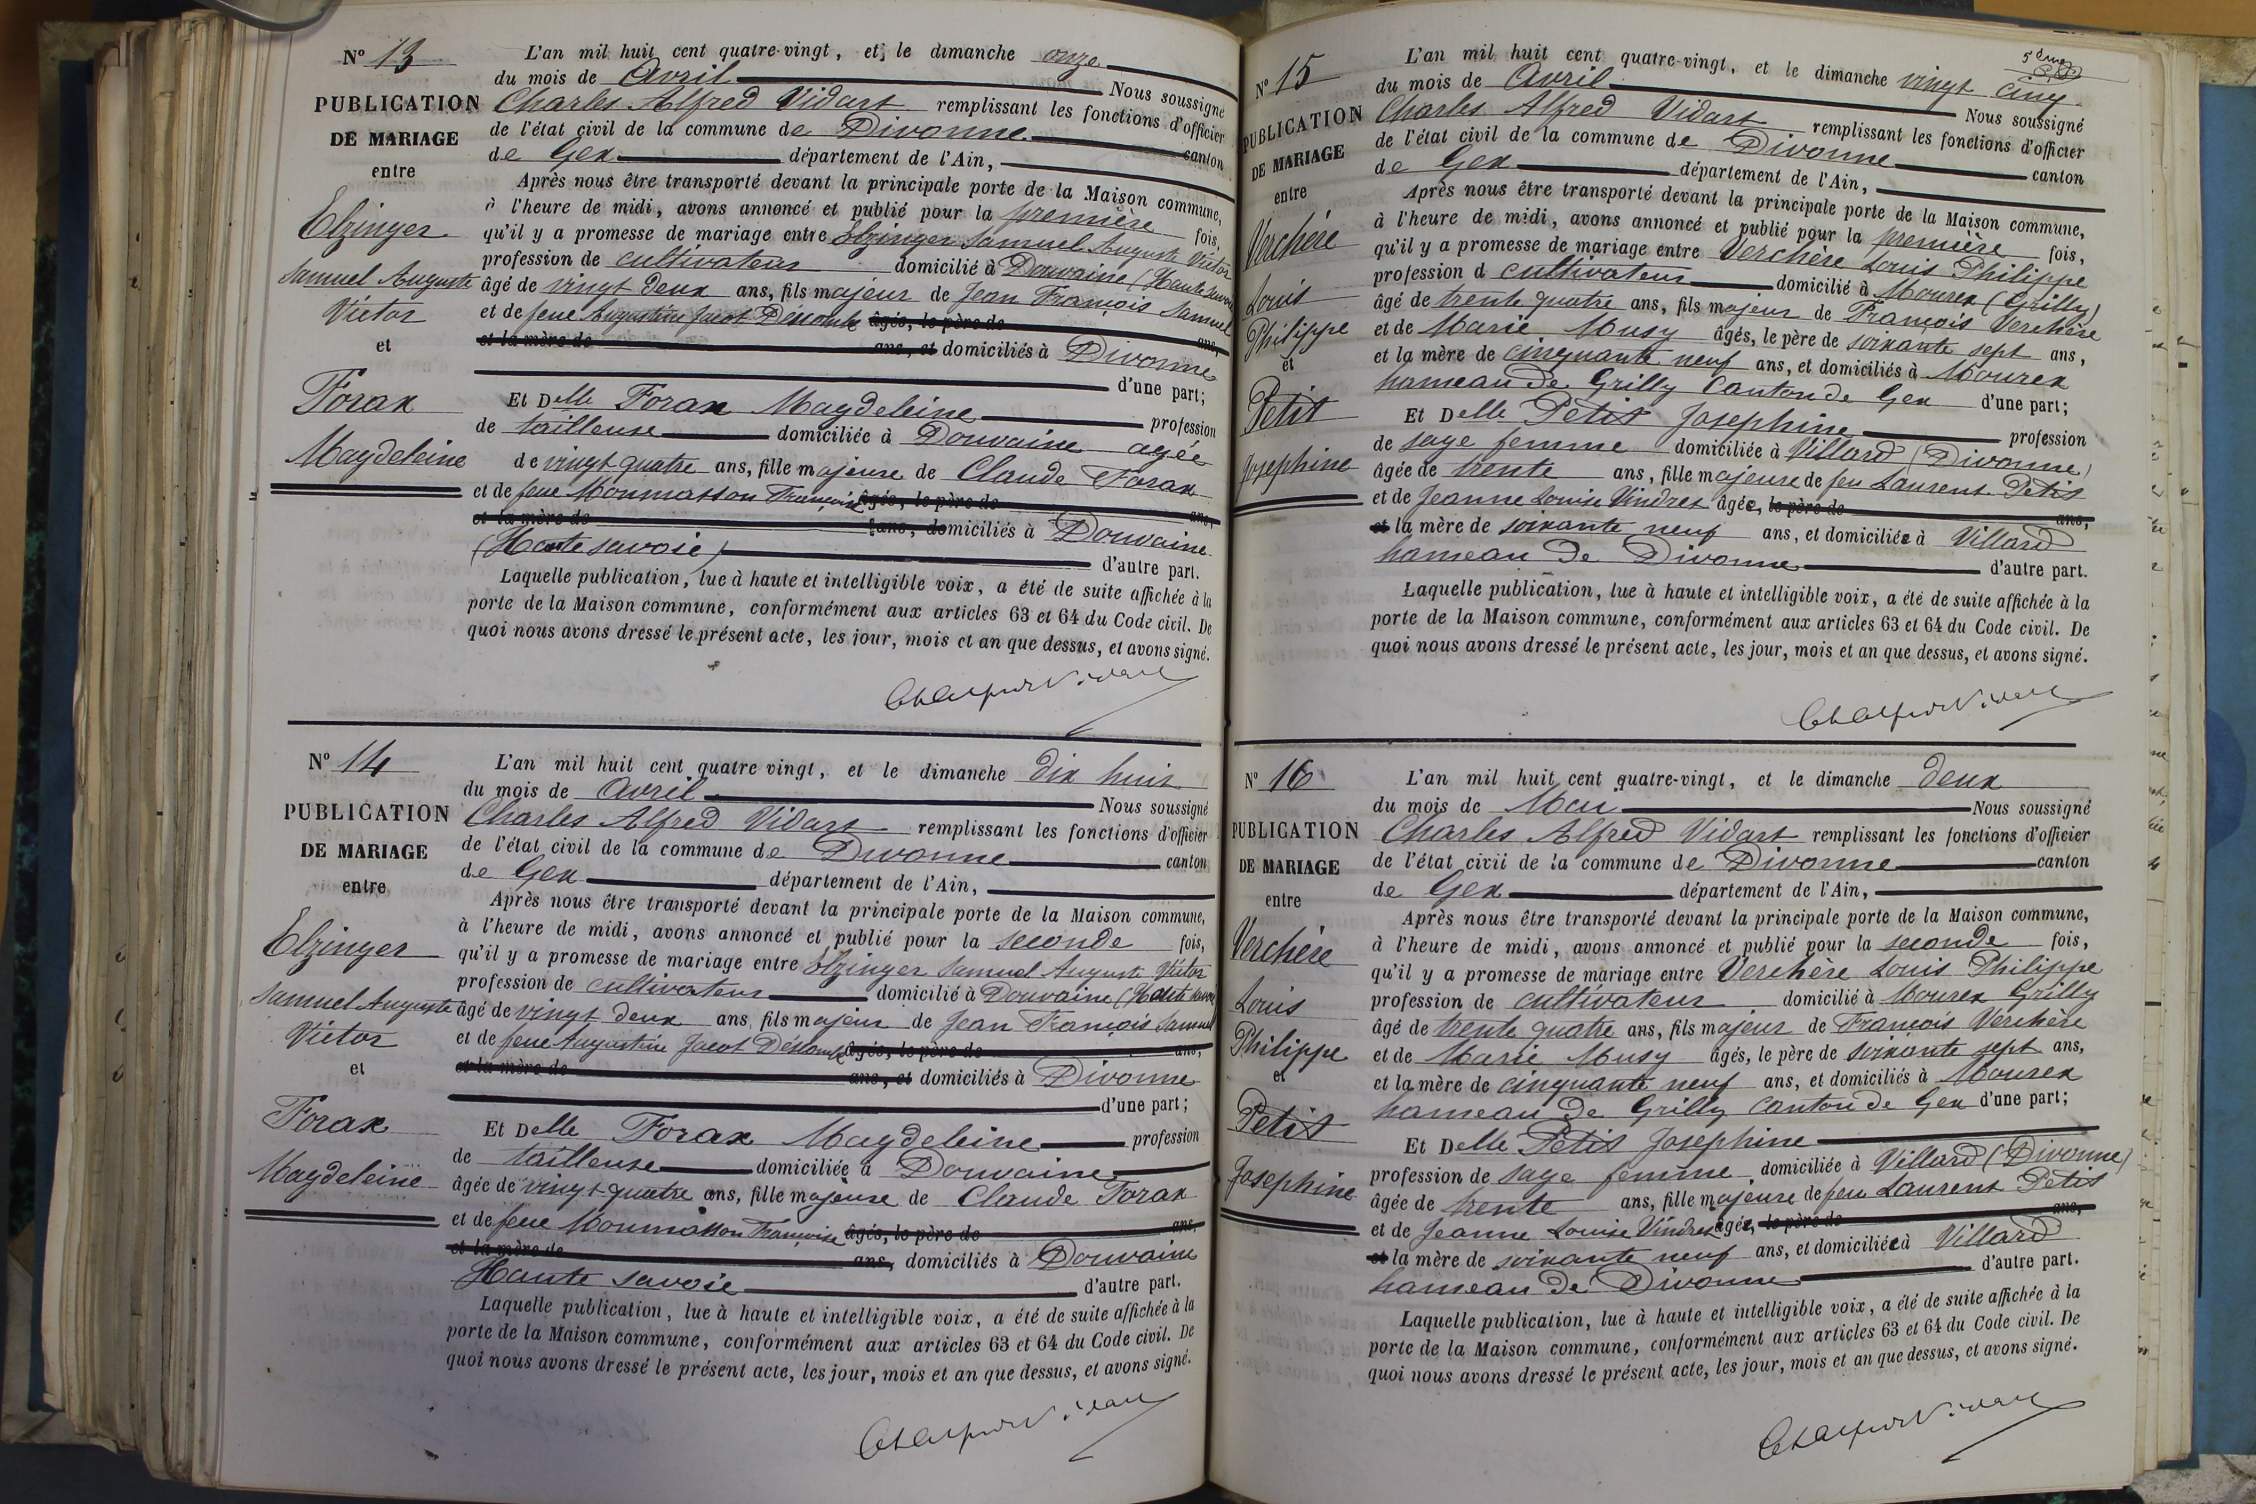 N° 13
PUBLICATION
DE MARIAGE
entre
Elzinger
Samuel Auguste
Victor
et
Forax
Magdeleine
L'an mil huit cent quatre-vingt, et, le dimanche onze
du mois de Avril Nous soussigné
Charles Alfred Vidart remplissant les fonctions d'officier
de l'état civil de la commune de Divonne canton
de Gex département de l'Ain,
Après nous être transporté devant la principale porte de la Maison commune,
à l'heure de midi, avons annoncé et publié pour la première fois,
qu'il y a promesse de mariage entre Elzinger Samuel Auguste Victor
profession de cultivateur domicilié à Douvaine (Haute Savoie)
âgé de vingt deux ans, fils majeur de Jean François Samuel
et de feue Augustine Jacot Descombe âgés, le père de ans,
et la mère de ans, et domiciliés à Divonne
d'une part;
Et Delle Forax Magdeleine profession
de tailleuse domiciliée à Douvaine agée
de vingt quatre ans, fille majeure de Claude Forax
et de feue Monmasson Françoise âgés, le père de ans,
et la mère de ans, domiciliés à Douvaine
(Haute savoie) d'autre part.
Laquelle publication, lue à haute et intelligible voix, a été de suite affichée à la
porte de la Maison commune, conformément aux articles 63 et 64 du Code civil. De
quoi nous avons dressé le présent acte, les jour, mois et an que dessus, et avons signé.
Ch Alfred Vidart
N° 14
PUBLICATION
DE MARIAGE
entre
Elzinger
Samuel Auguste
Victor
et
Forax
Magdeleine
L'an mil huit cent quatre vingt, et le dimanche dix huit
du mois de Avril Nous soussigné
Charles Alfred Vidart remplissant les fonctions d'officier
de l'état civil de la commune de Divonne canton
de Gex département de l'Ain,
Après nous être transporté devant la principale porte de la Maison commune,
à l'heure de midi, avons annoncé et publié pour la seconde fois,
qu'il y a promesse de mariage entre Elzinger Samuel Auguste Victor
profession de cultivateur domicilié à Douvaine (Haute Savoie)
âgé de vingt deux ans, fils majeur de Jean François Samuel
et de feue Augustine Jacot Descombe âgés, le père de ans,
et la mère de ans, et domiciliés à Divonne
d'une part;
Et Delle Forax Magdeleine profession
de tailleuse domiciliée à Douvaine
âgée de vingt-quatre ans, fille majeure de Claude Forax
et de feue Monmasson Françoise âgés, le père de ans,
et la mère de ans, domiciliés à Douvaine
Haute savoie d'autre part.
Laquelle publication, lue à haute et intelligible voix, a été de suite affichée à la
porte de la Maison commune, conformément aux articles 63 et 64 du Code civil. De
quoi nous avons dressé le présent acte, les jour, mois et an que dessus, et avons signé.
Ch Alfred Vidart
5ème
N° 15
PUBLICATION
DE MARIAGE
entre
Verchère
Louis
Philippe
et
Petit
Josephine
L'an mil huit cent quatre-vingt, et le dimanche vingt cinq
du mois de Avril Nous soussigné
Charles Alfred Vidart remplissant les fonctions d'officier
de l'état civil de la commune de Divonne canton
de Gex département de l'Ain,
Après nous être transporté devant la principale porte de la Maison commune,
à l'heure de midi, avons annoncé et publié pour la première fois,
qu'il y a promesse de mariage entre Verchère Louis Philippe
profession d cultivateur domicilié à Mourex (Grilly)
âgé de trente quatre ans, fils majeur de François Verchère
et de Marie Musy âgés, le père de soixante sept ans,
et la mère de cinquante neuf ans, et domiciliés à Mourex
hameau de Grilly Canton de Gex d'une part;
Et Delle Petit Josephine profession
de sage femme domiciliée à Villard (Divonne)
âgée de trente ans, fille majeure de feu Laurent Petit
et de Jeanne Louise Vindret âgée, le père de ans,
et la mère de soixante neuf ans, et domiciliée à Villard
hameau de Divonne d'autre part.
Laquelle publication, lue à haute et intelligible voix, a été de suite affichée à la
porte de la Maison commune, conformément aux articles 63 et 64 du Code civil. De
quoi nous avons dressé le présent acte, les jour, mois et an que dessus, et avons signé.
Ch Alfred Vidart
N° 16
PUBLICATION
DE MARIAGE
entre
Verchère
Louis
Philippe
et
Petit
Josephine
L'an mil huit cent quatre-vingt, et le dimanche deux
du mois de Mai Nous soussigné
Charles Alfred Vidart remplissant les fonctions d'officier
de l'état civil de la commune de Divonne canton
de Gex département de l'Ain,
Après nous être transporté devant la principale porte de la Maison commune,
à l'heure de midi, avons annoncé et publié pour la seconde fois,
qu'il y a promesse de mariage entre Verchère Louis Philippe
profession de cultivateur domicilié à Mourex Grilly
âgé de trente quatre ans, fils majeur de François Verchère
et de Marie Musy âgés, le père de soixante sept ans,
et la mère de cinquante neuf ans, et domiciliés à Mourex
hameau de Grilly Canton de Gex d'une part;
Et Delle Petit Josephine
profession de sage femme domiciliée à Villard (Divonne)
âgée de trente ans, fille majeure de feu Laurent Petit
et de Jeanne Louise Vindret âgée, le père de ans,
et la mère de soixante neuf ans, et domiciliée à Villard
hameau de Divonne d'autre part.
Laquelle publication, lue à haute et intelligible voix, a été de suite affichée à la
porte de la Maison commune, conformément aux articles 63 et 64 du Code civil. De
quoi nous avons dressé le présent acte, les jour, mois et an que dessus, et avons signé.
Ch Alfred Vidart